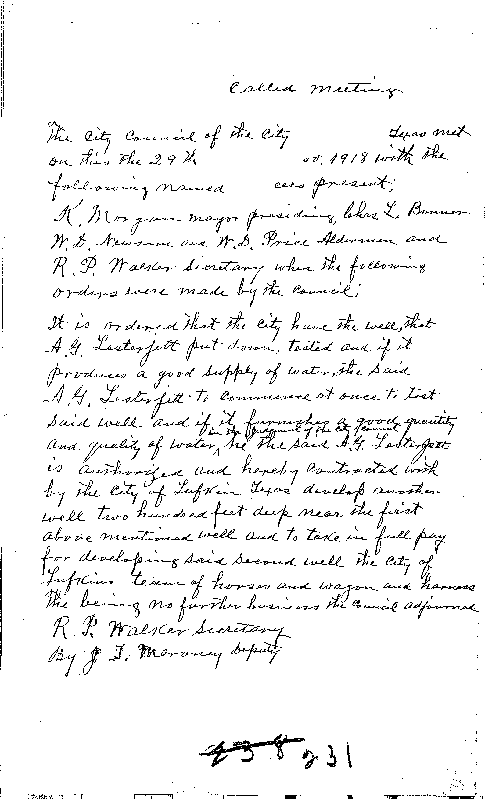 Called Meeting
The City Council of the City Texas met
on this the 29th ov. 1918 with the
following named cers present;
K. Morgan mayor presiding, Chas L. Bonner
W.D. Newsom and W.D. Price Aldermen and
R.P. Walker Secretary when the following
orders were made by the council;
It is ordered that the City have the well, that
A.G. Lesterfett put down, tested and if it
produces a good supply of water, the said
A.G. Lesterfett to commence at once to test
said well and if it furnishes a good quantity
in the judgment of the City Council
and quality of water, he the said A.G. Lesterfett
is authorized and hereby contracted with
by the City of Lufkin Texas develop another
well two hundred feet deep near the first
above mentioned well and to take in full pay
for developing said second well the City of
Lufkins team of horses and wagon and harness
the being no further business the Council adjourned
R.P. Walker Secretary
By J.T. Maroney Deputy
231